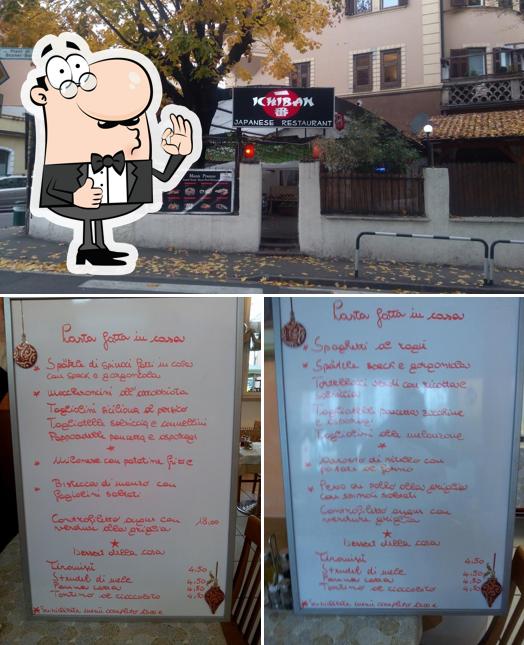 ICHIBAN
JAPANESE RESTAURANT
Menù Pranzo
Pasta fatta in casa
Spätzle di spinaci fatti in casa
con speck e gorgonzola
Maccheroncini all'arrabbiata
Tagliolini siciliana al persico
Tagliatelle salsiccia e cannellini
Pappardelle pancetta e asparagi
Milanese con patatine fritte
Bistecca di manzo con
fagiolini saltati
Controfiletto angus con 18.00
verdure alla griglia
Dessert della casa
Tiramisù 4.50
Strudel di mele 4.50
Panna cotta 4.50
Tortino al cioccolato 4.50
Pasta fatta in casa
Spaghetti al ragù
Spätzle speck e gorgonzola
Tortellacci verdi con ricotta e
salsiccia
Tagliatelle pancetta zucchine
Tagliolini alla melanzane
Arrosto di vitello con
patate al forno
Petto di pollo alla griglia
con spinaci saltati
Controfiletto angus con
verdure griglia
Dessert della casa
Tiramisù 4.50
Strudel di mele 4.50
Panna cotta 4.50
Tortino al cioccolato 4.50